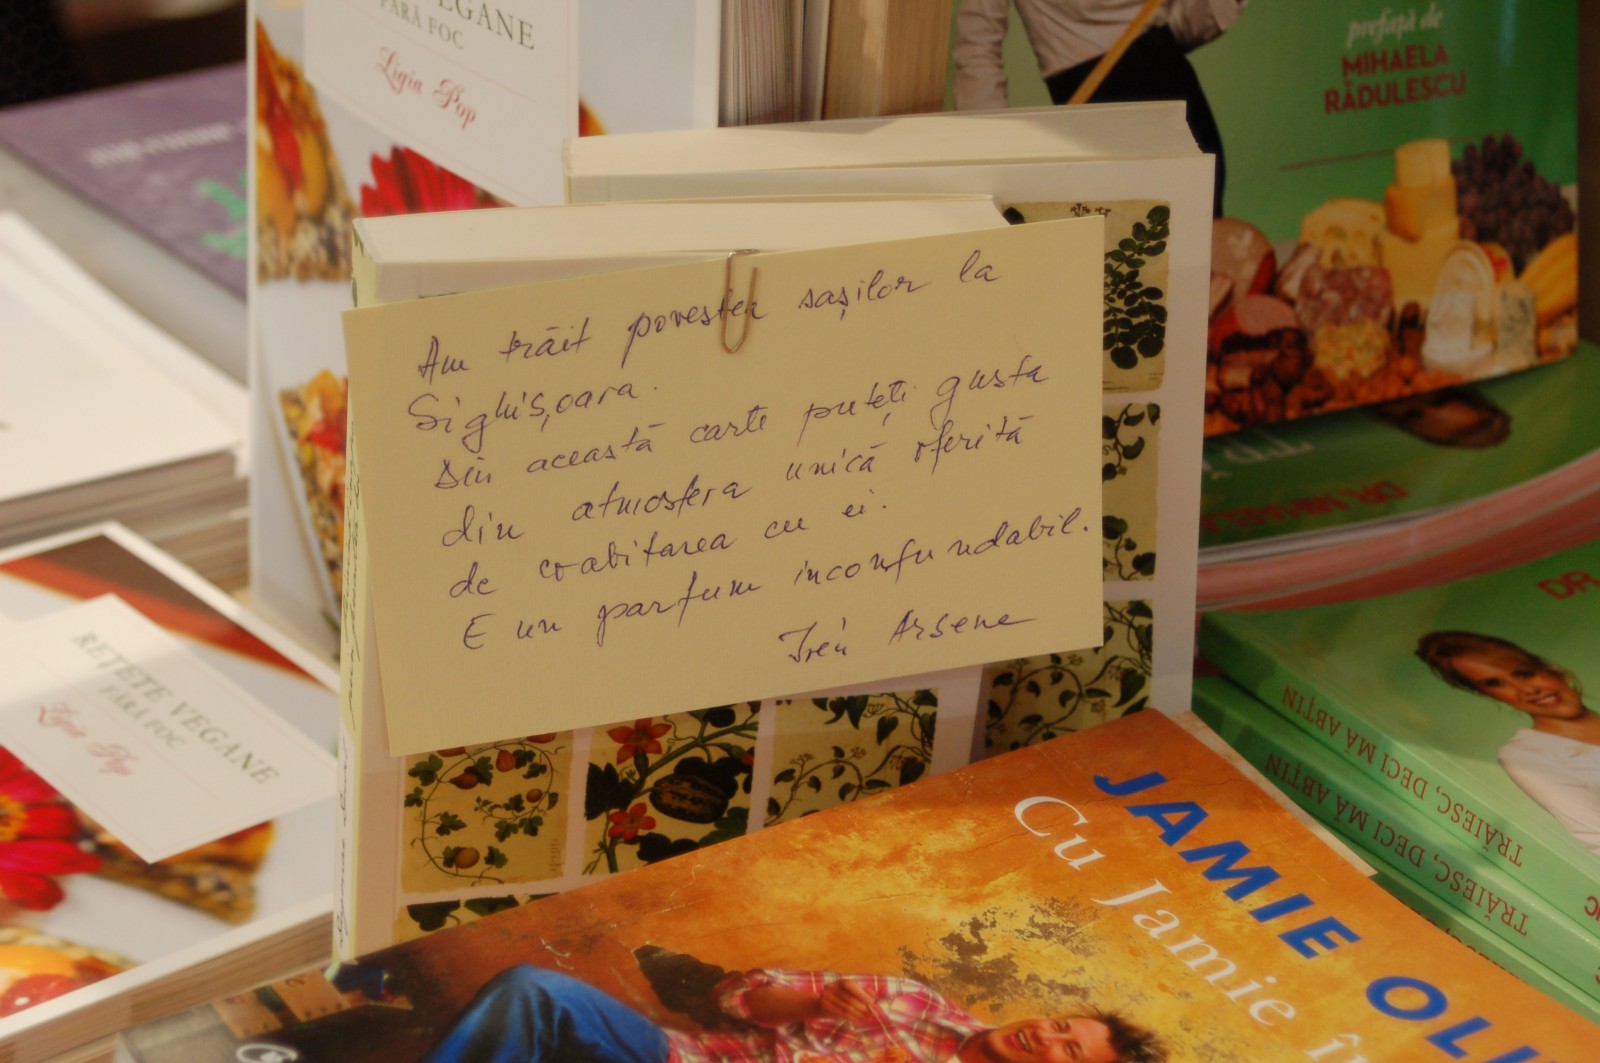 VEGANE
FĂRĂ FOC
Ligia Pop
prefață de
MIHAELA
RĂDULESCU
Am trăit povestea sașilor la
Sighișoara.
Din această carte puteți gusta
din atmosfera unică oferită
de coabitarea cu ei.
E un parfum inconfundabil.
Irén Arsene
REȚETE VEGANE
FĂRĂ FOC
Ligia Pop
JAMIE OLI
Cu Jamie î
DR
TRĂIESC, DECI MĂ ABȚIN
TRĂIESC, DECI MĂ ABȚIN